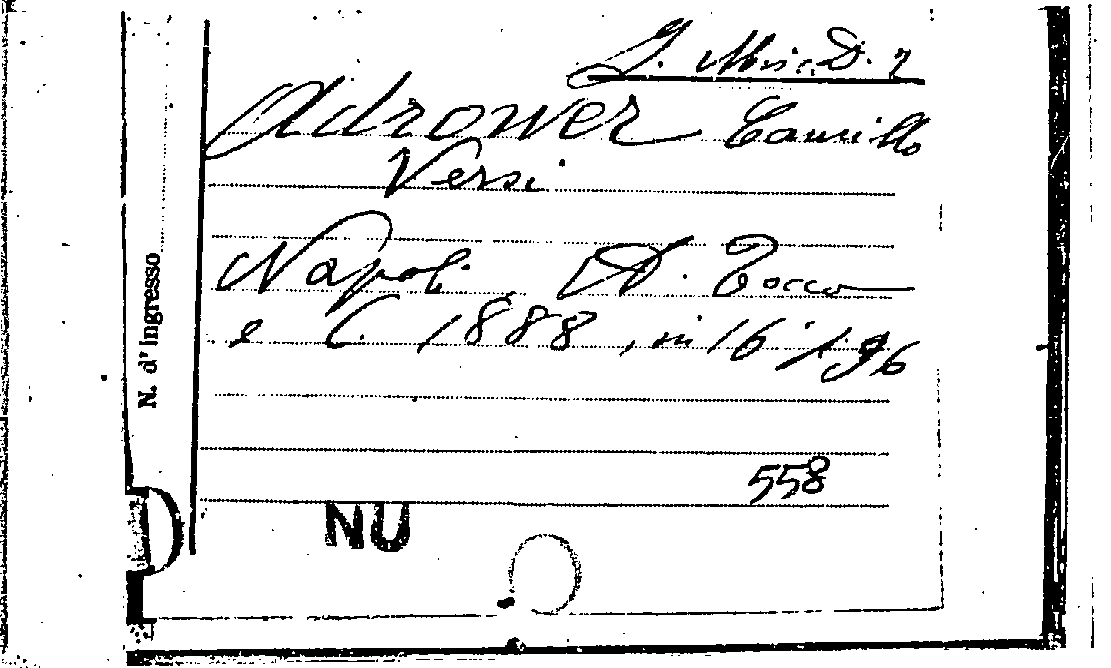 G. Misc. D. 7
Adrower Camillo
Versi.
Napoli A. Tocco
e C. 1888, in 16° p. 96
558
NU
N. d'Ingresso